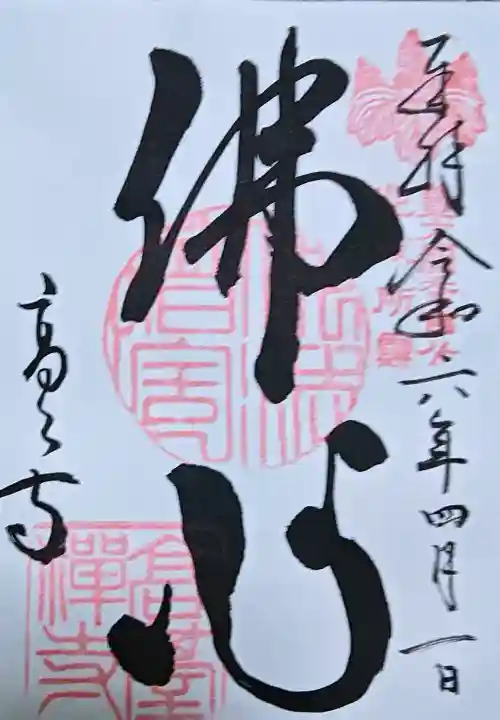 奉拝 令和六年四月一日
佛心
高台寺
高臺禪寺